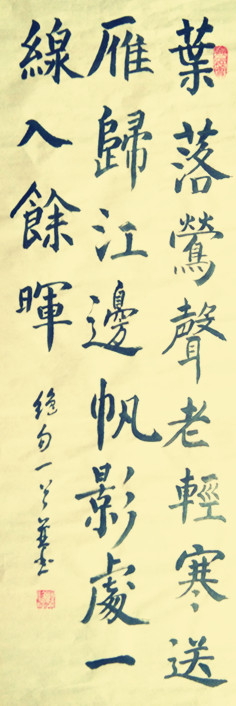 葉落鶯聲老輕寒送
雁歸江邊帆影處一
線入餘暉
絕句一首並書